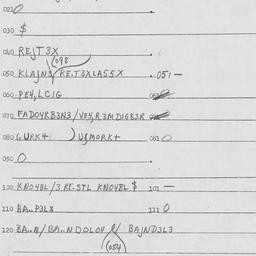 021 0
030 $
040 REJT3X
098
050 KLAJNS/RE.T3XLAS5X .051 —
060 PE4,LCIG
070 FADO4RB3N3/VE4,R3MDIGB3R
080 GURK+ )UGMORK+ 081 0
090 0
100 KNO4BL/3.RE.STL KNO4BL $ 101 —
110 HA..P3L3 111 0
120 BA..N/BA..NDOLO4 // BAJND3L3
(054)